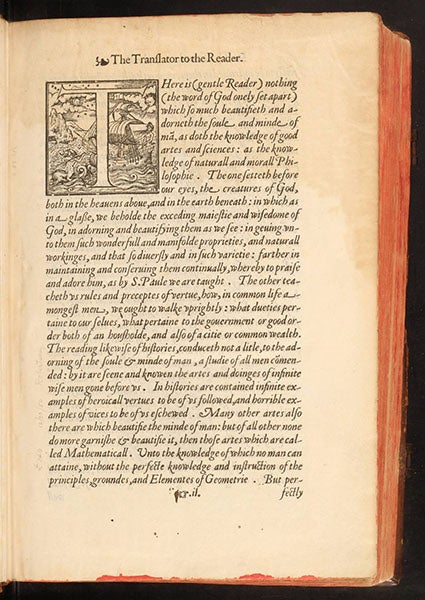 The Translator to the Reader.
THere is (gentle Reader) nothing
(the word of God onely set apart)
which so much beautifieth and a-
dorneth the soule and minde of
mã, as doth the knowledge of good
artes and sciences: as the know-
ledge of naturall and morall Phi-
losophie. The one setteth before
our eyes, the creatures of God,
both in the heauens aboue, and in the earth beneath: in which as
in a glasse, we beholde the exceding maiestie and wisedome of
God, in adorning and beautifying them as we see: in geuing vn-
to them such wonderfull and manifolde proprieties, and naturall
workinges, and that so diuersly and in such varietie: farther in
maintaining and conseruing them continually, whereby to praise
and adore him, as by S. Paule we are taught. The other tea-
cheth vs rules and preceptes of vertue, how, in common life a-
mongest men, we ought to walke vprightly: what dueties per-
taine to our selues, what pertaine to the gouernment or good or-
der both of an housholde, and also of a citie or common wealth.
The reading likewise of histories, conduceth not a litle, to the ad-
orning of the soule & minde of man, a studie of all men cōmen-
ded: by it are seene and knowen the artes and doinges of infinite
wise men gone before vs. In histories are contained infinite ex-
amples of heroicall vertues to be of vs followed, and horrible ex-
amples of vices to be of vs eschewed. Many other artes also
there are which beautifie the minde of man: but of all other none
do more garnishe & beautifie it, then those artes which are cal-
led Mathematicall. Vnto the knowledge of which no man can
attaine, without the perfecte knowledge and instruction of the
principles, groundes, and Elementes of Geometrie. But per-
.ii. fectly